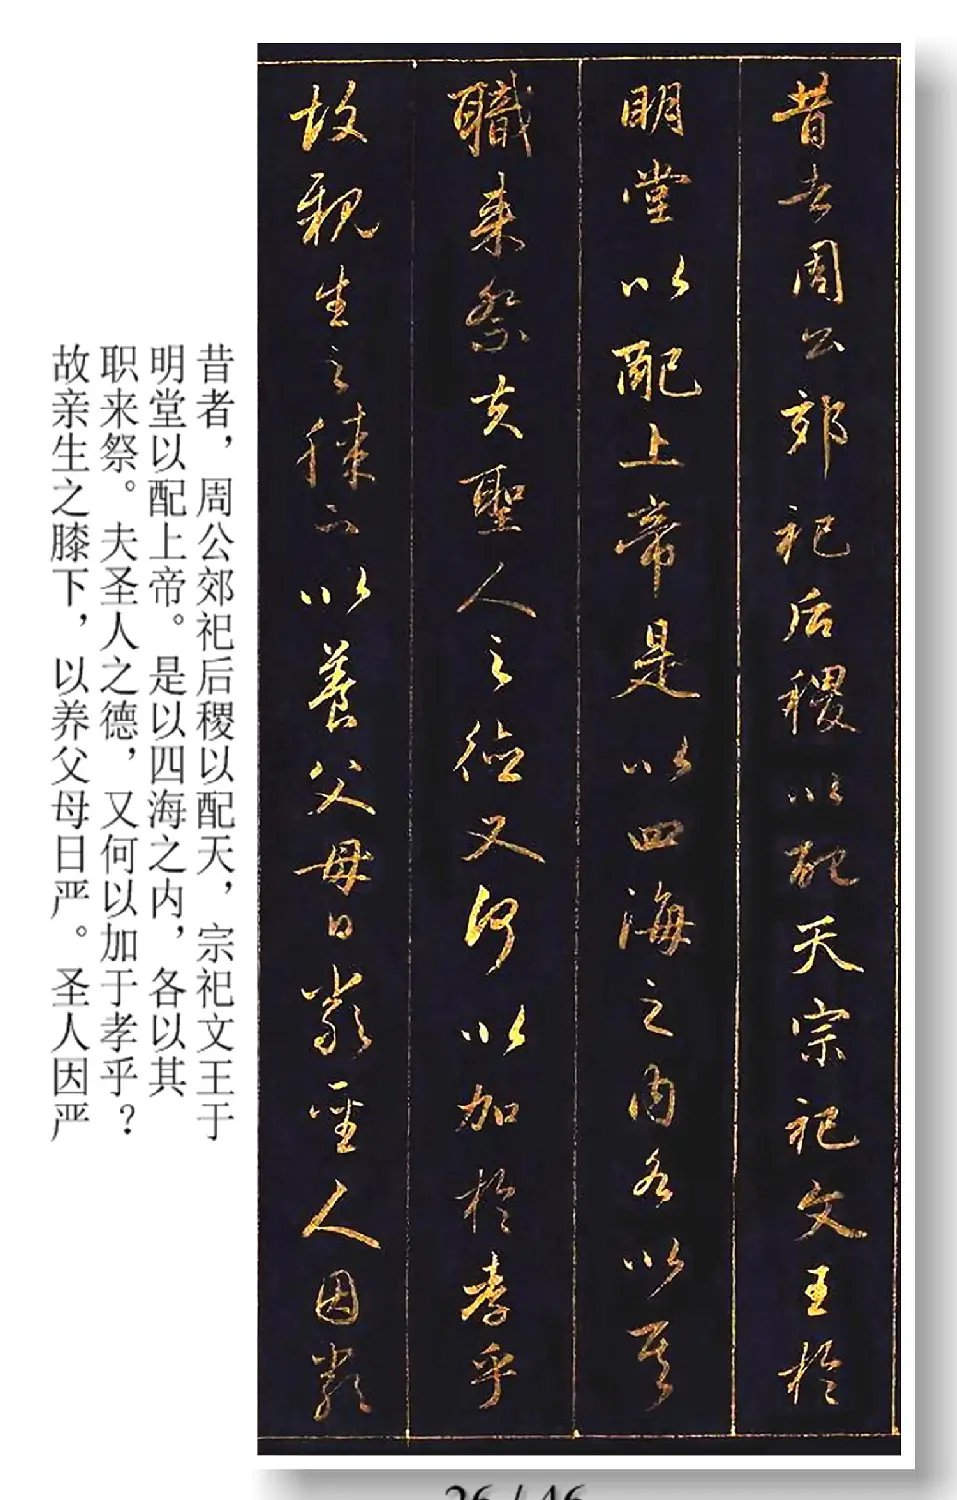 昔者周公郊祀后稷以配天宗祀文王於
明堂以配上帝是以四海之内各以其
職来祭夫聖人之德又何以加於孝乎
故親生之膝下以養父母日嚴聖人因嚴
昔者，周公郊祀后稷以配天，宗祀文王于
明堂以配上帝。是以四海之内，各以其
职来祭。夫圣人之德，又何以加于孝乎？
故亲生之膝下，以养父母日严。圣人因严
26 / 46